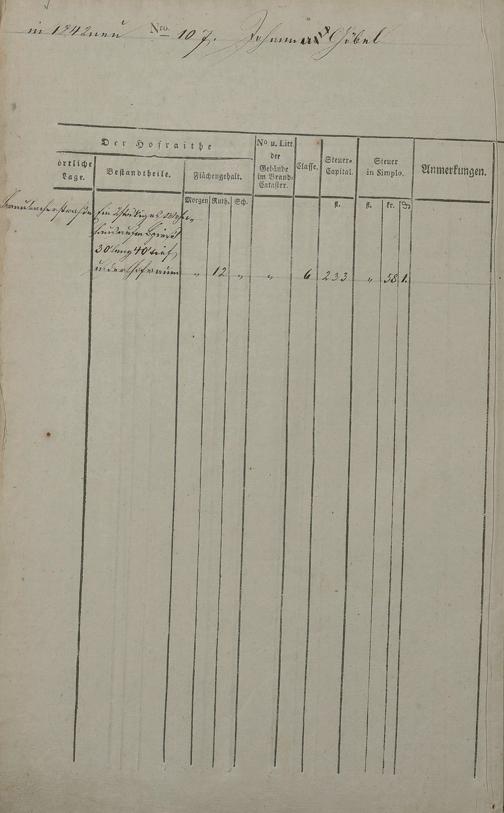 in 1842 neu Nro. 107. Johann Göbel
Der Hofraithe
örtliche Lage.
Bestandtheile.
Flächengehalt.
Morgen Ruth. Sch.
No u. Litt. der Gebäude im Brand-Cataster.
Classe.
Steuer-Capital.
fl.
Steuer in Simplo.
fl. kr. ₰
Anmerkungen.
Ein 2stöckiges Wohn-
30' lang 40' tief
und Hofraum „ 12 „ „ 6 233 „ 58 1.